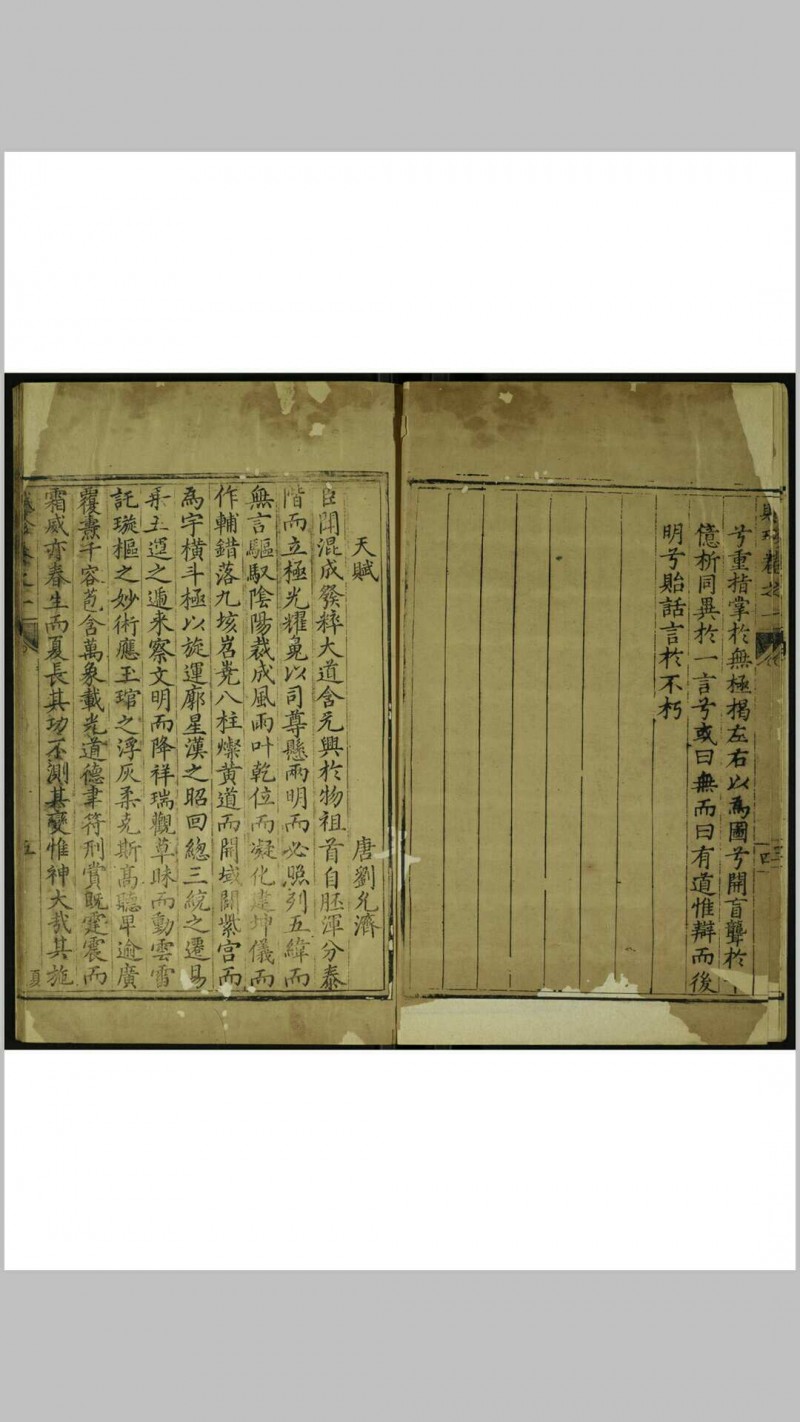 兮重指掌於無極揭左右以為圖兮開盲聾於
億析同異於一言兮或曰無而曰有道惟辯而後
明兮貽話言於不朽
天賦 唐劉允濟
臣聞混成發粹大道含元興於物祖首自胚渾分泰
階而立極光耀兔以司尊懸兩明而必照列五緯而
無言驅馭陰陽裁成風雨叶乾位而凝化建坤儀而
作輔錯落九垓岧嶤八柱燦黃道而開域闢紫宮而
為宇橫斗極以旋運廓星漢之昭回總三統之遷易
乘五運之遞來察文明而降祥瑞觀草昧而動雲雷
託璇樞之妙術應玉琯之浮灰柔克斯高聽卑逾廣
覆燾千容苞含萬象載光道德聿符刑賞既霆震而
霜威亦春生而夏長其功不測其變惟神大哉其施
夏